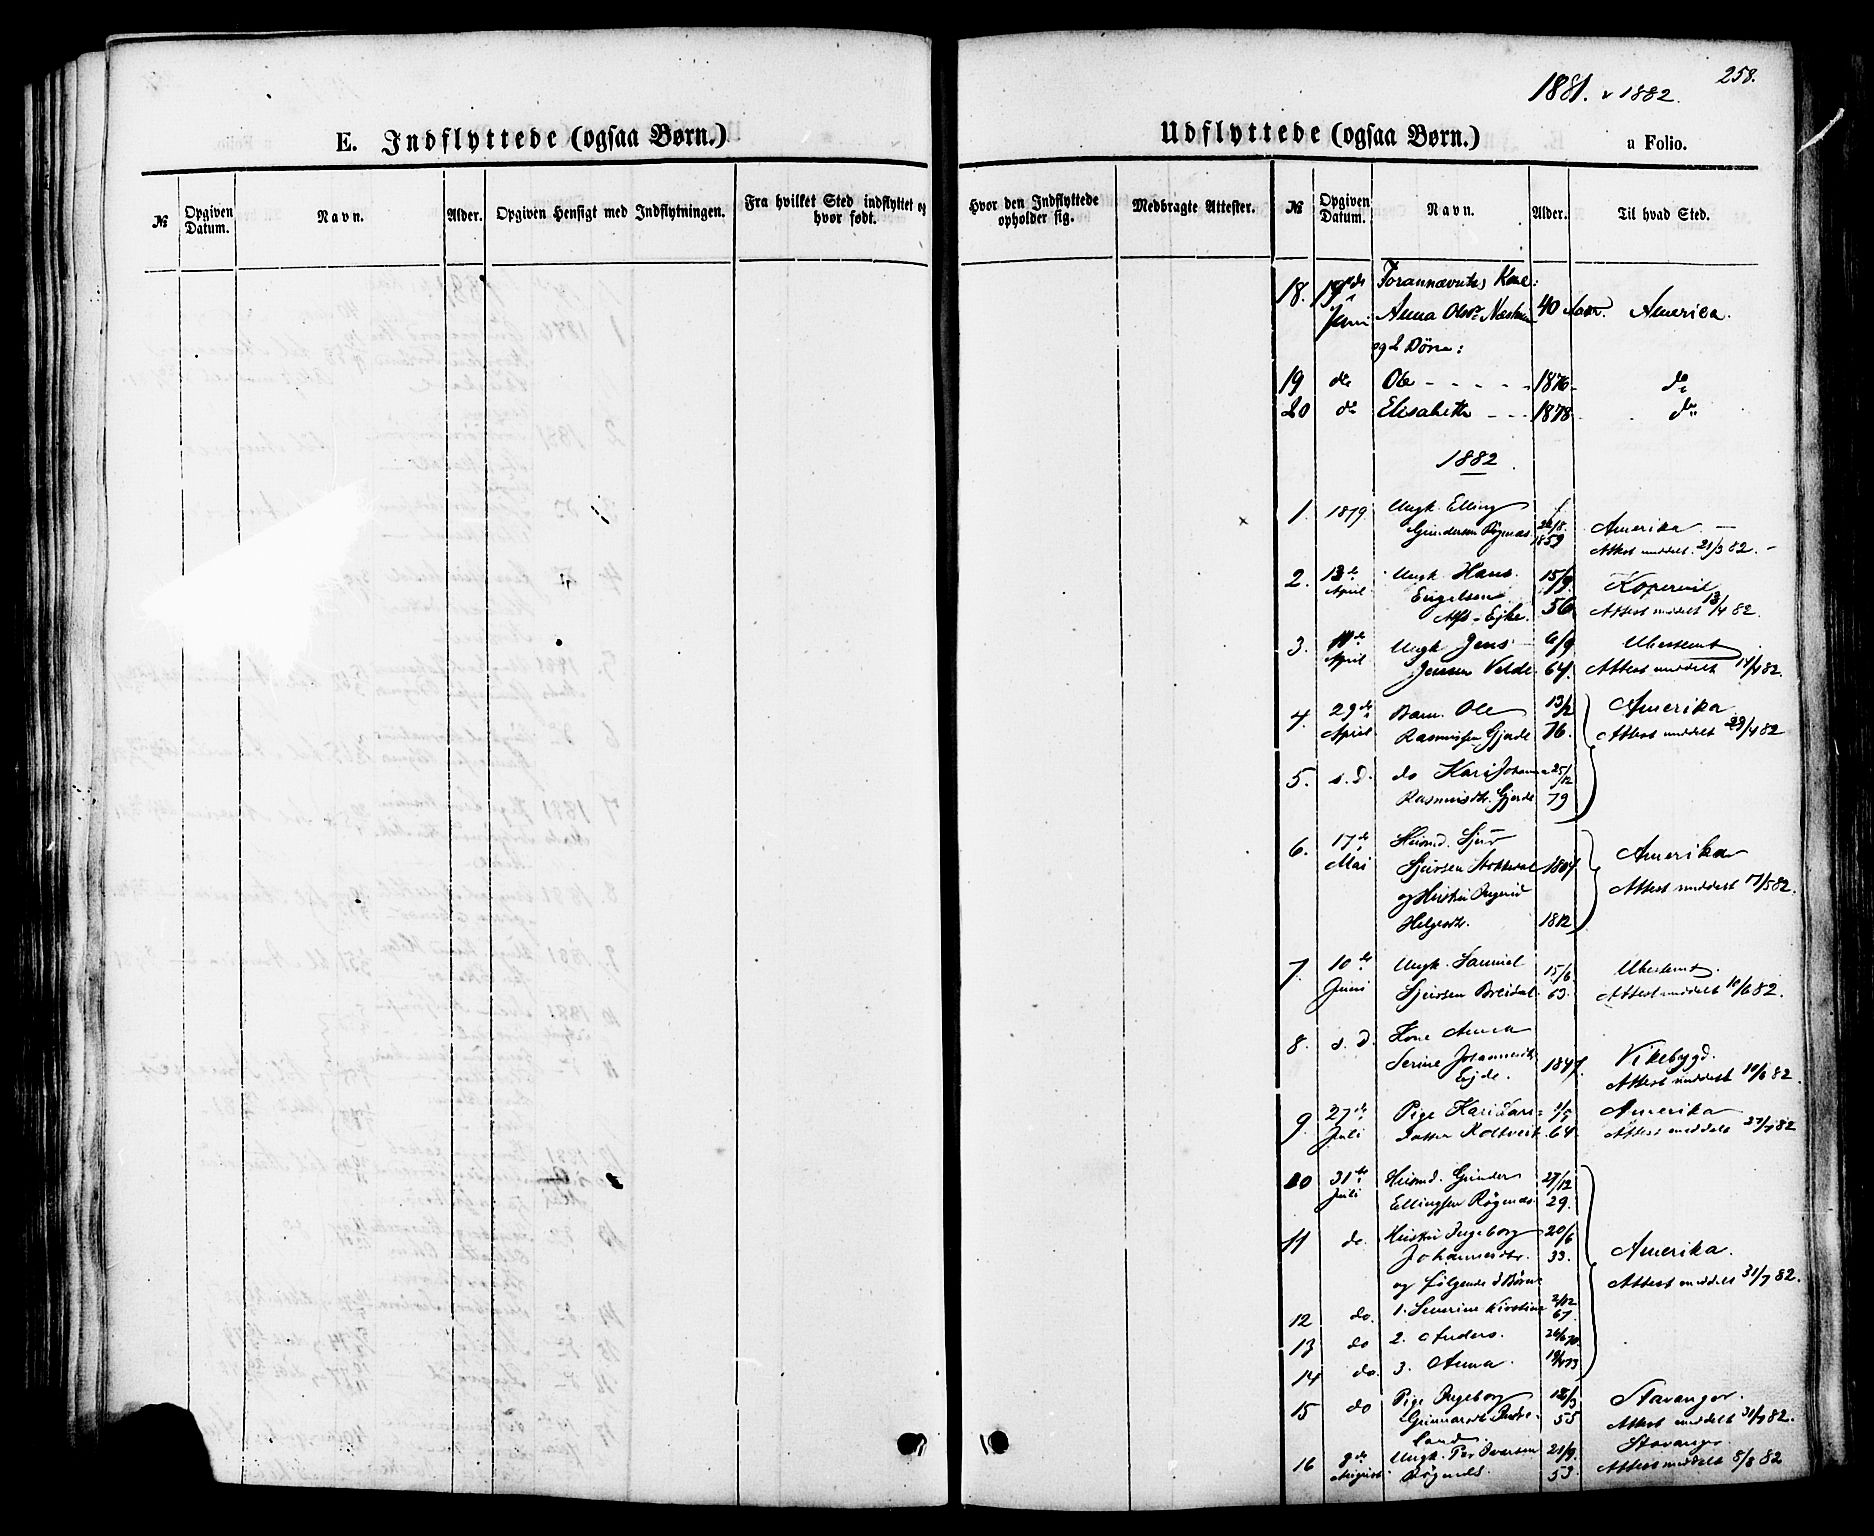 258.
1881. & 1882.
E. Indflyttede (ogsaa Børn.)
Udflyttede (ogsaa Børn.)
a Folio.
№
Opgiven Datum.
Navn.
Alder.
Opgiven Hensigt med Indflytningen.
Fra hvilket Sted indflyttet og hvor født.
Hvor den Indflyttede opholder sig.
Medbragte Attester.
№
Opgiven Datum.
Navn.
Alder.
Til hvad Sted.
18. 19de Forannævntes Kone:
Juni Anna Olsdr 40 Aar. Amerika.
og 2 Børn:
19 do Ole - - - - - 1876 do
20 do Elisabeth - - - 1878 do
1882
1. 1879 Ungk. Elling
Gundersen Røgnæs 1859 Amerika -
Attest meddelt 21/3 82. -
2. 13de Ungk. Hans 15/9 Kopervik
April Engelsen 56 Attest meddelt 13/4 82.
Ejke.
3. 14de Ungk. Jens 6/9 Ubestemt
April Jensen Velde. 64. Attest meddelt 14/4 82.
4. 29de Barn. Ole 13/2 Amerika
April Rasmussen Gjerde 76. Attest meddelt 29/4 82
5. s.D. do Kari Johanna 25/12
Rasmusdtr. Gjerde 79
6. 17de Huusmd. Sjur
Mai Sjursen Stokkedal 1807 Amerika
og Hustru Ingerid Attest meddelt 17/5 82.
Helgesdtr. 1812
7. 10de Ungk. Samuel 15/6 Ubestemt.
Juni Sjursen Breidal 63. Attest meddelt 10/6 82.
8. s.D. Kone Anna
Serine Johannesdtr. 1847. Vikebygd.
Ejde. Attest meddelt 10/6 82.
9. 27de Pige Kari Lars= 1/5 Amerika
Juli datter Koltveit 64 Attest meddelt 27/7 82
10 31te Huusmd. Gunder 27/12
Juli Ellingsen Røgnæs 29.
11 do. Hustru Ingeborg 20/6
Johannesdtr. 33. Amerika.
og følgende 3 Børn Attest meddelt 31/7 82.
12 do. 1. Severine Kirstine 2/12 67.
13 do 2. Anders. 26/6 70
14 do. 3. Anna.
15 do Pige Ingeborg 18/3 Stavanger.
Gunnarsdtr. Indre- 55 Attest meddelt 31/7 82.
land.
16 8de Ungk. Per Iversen 21/9. Stavanger
August Røgnæs. 53. Attest meddelt 8/8 82